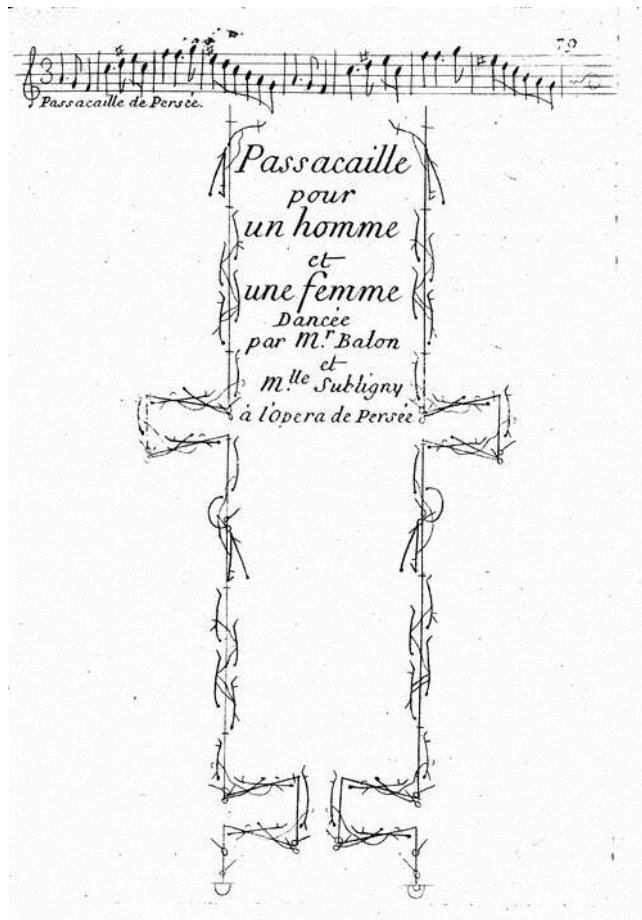 79
3
Passacaille de Persée.
Passacaille
pour
un homme
et
une femme
Dancée
par M.r Balon
et
M.lle Subligny
à l'opera de Persée